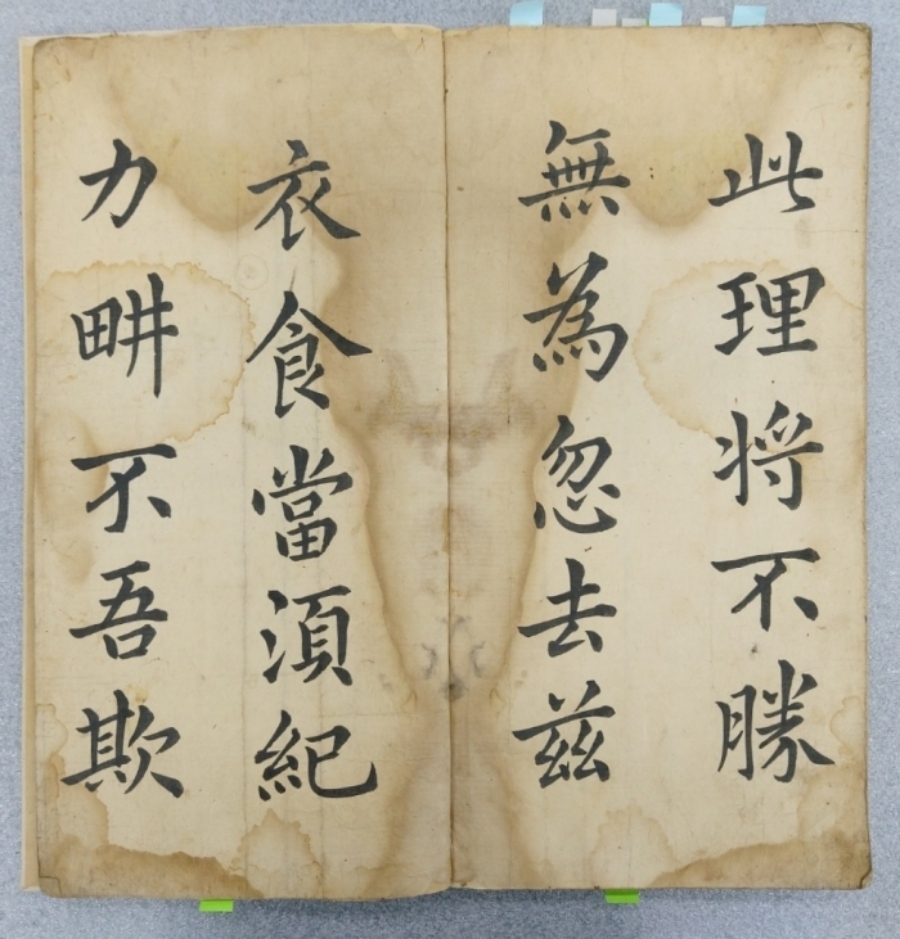 此理将不勝
無為忽去兹
衣食當湏紀
力畊不吾欺